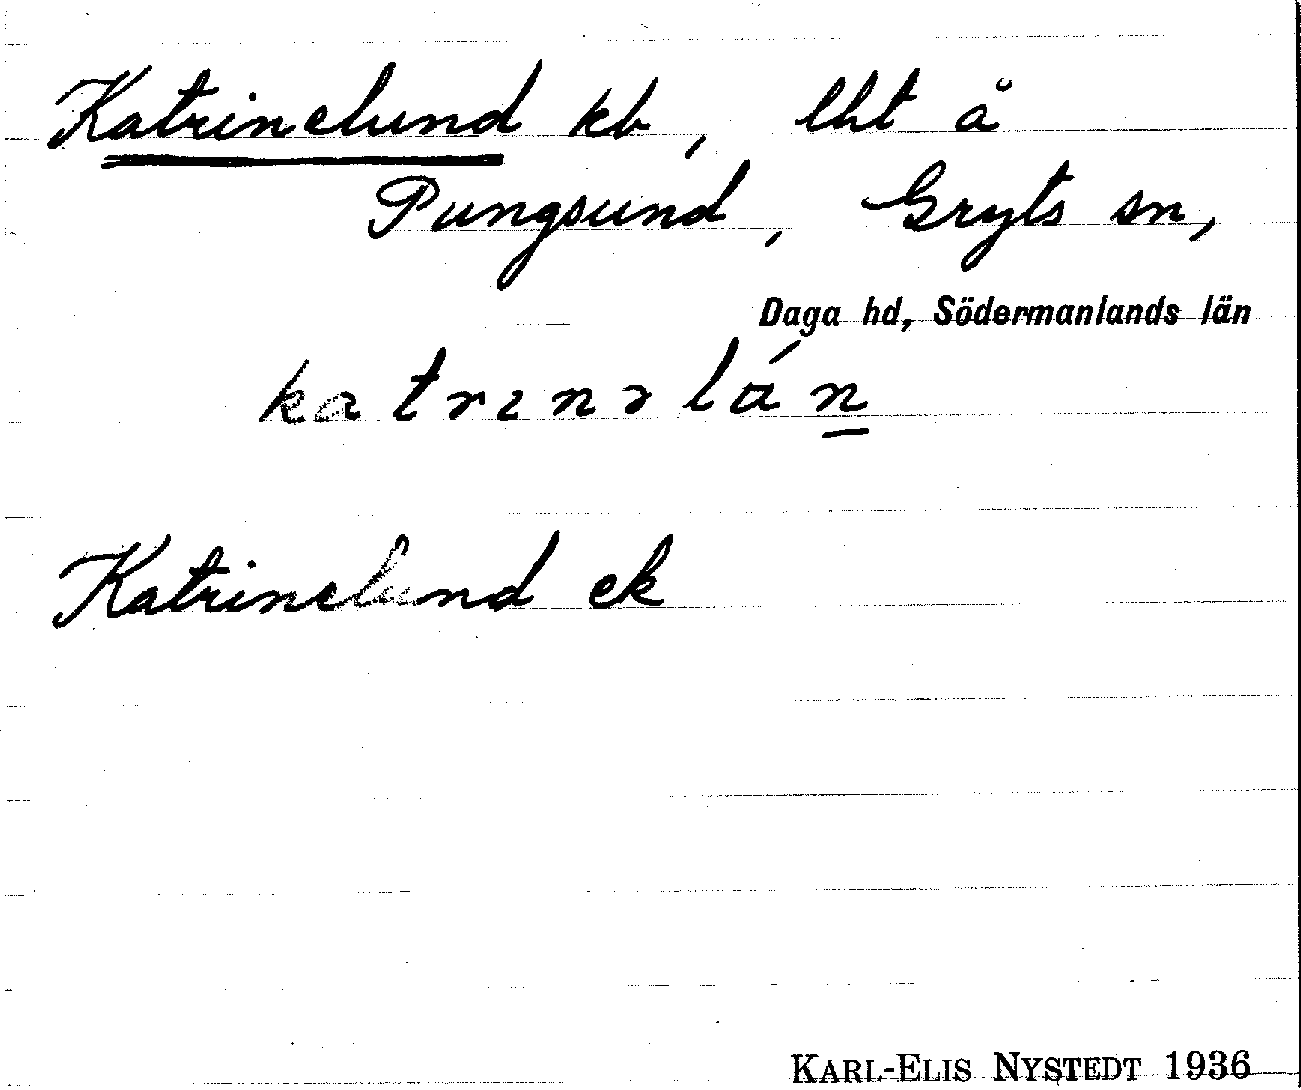 Katrinelund kb, lht å
Pungsund, Gryts sn,
Daga hd, Södermanlands län
katrɪnəlán
Katrinelund ek
KARL-ELIS NYSTEDT 1936